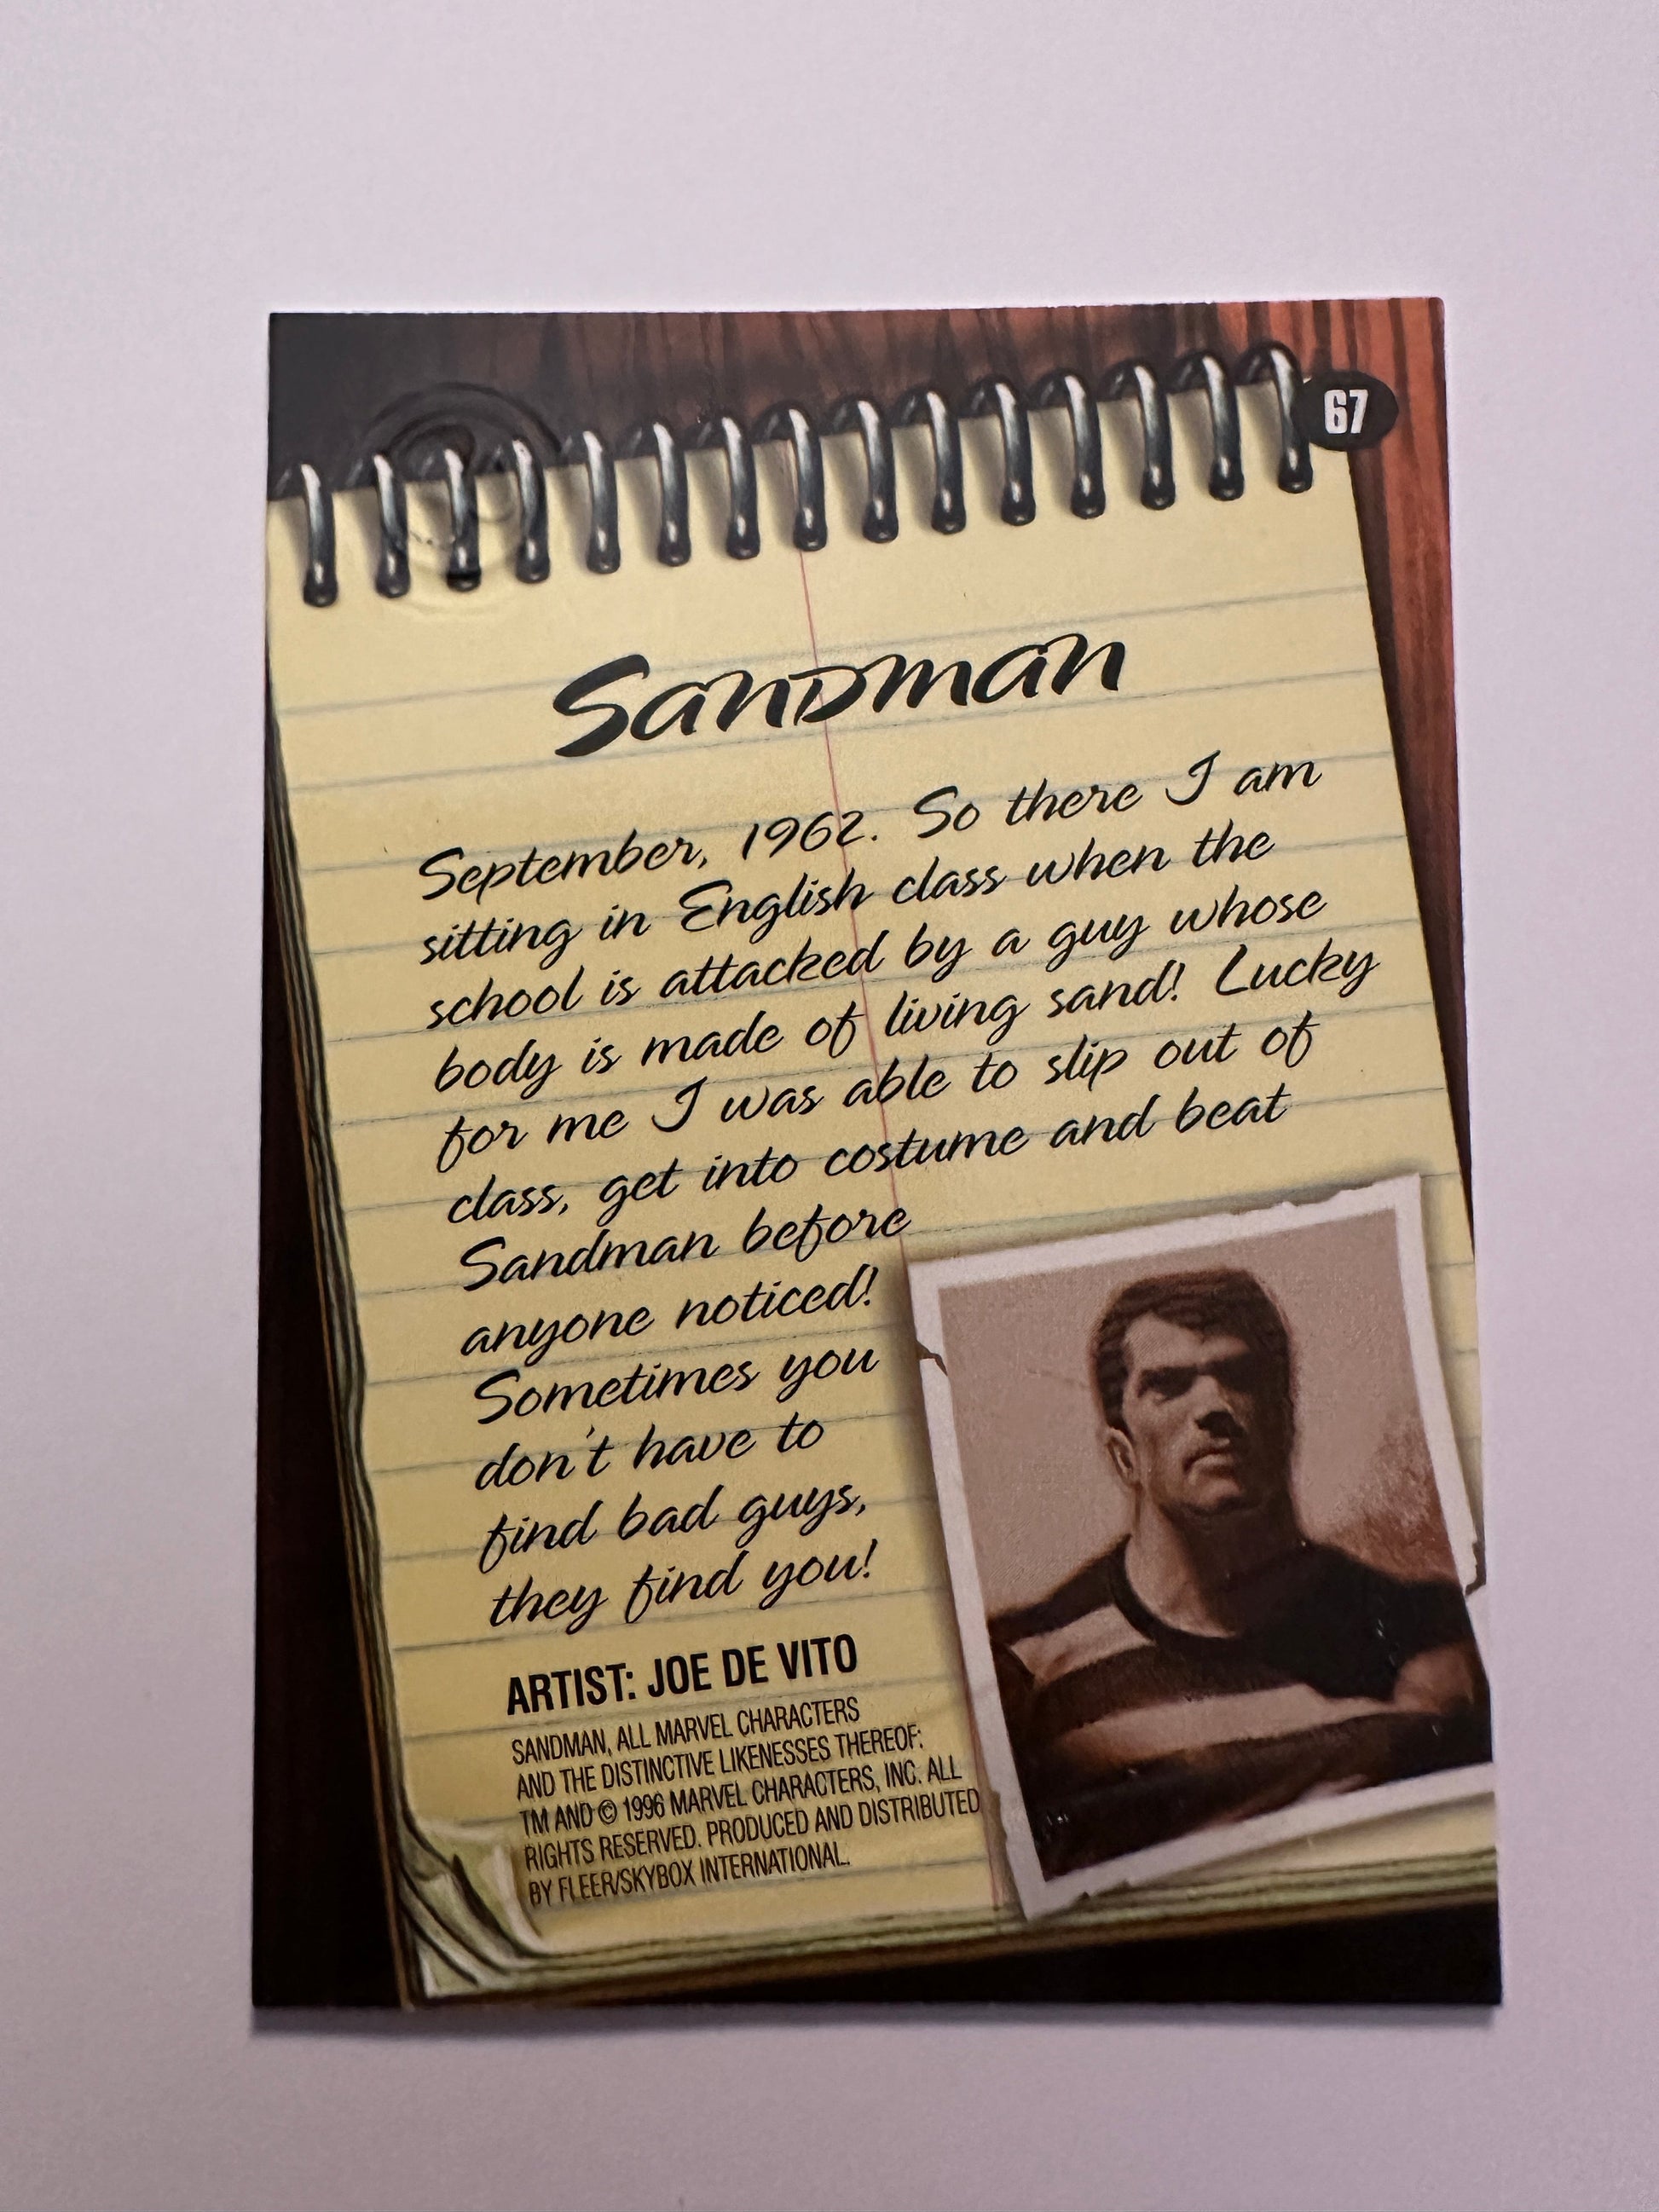 67
Sandman
September, 1962. So there I am
sitting in English class when the
school is attacked by a guy whose
body is made of living sand! Lucky
for me I was able to slip out of
class, get into costume and beat
Sandman before
anyone noticed!
Sometimes you
don't have to
find bad guys,
they find you!
ARTIST: JOE DE VITO
SANDMAN, ALL MARVEL CHARACTERS
AND THE DISTINCTIVE LIKENESSES THEREOF:
TM AND © 1996 MARVEL CHARACTERS, INC. ALL
RIGHTS RESERVED. PRODUCED AND DISTRIBUTED
BY FLEER/SKYBOX INTERNATIONAL.